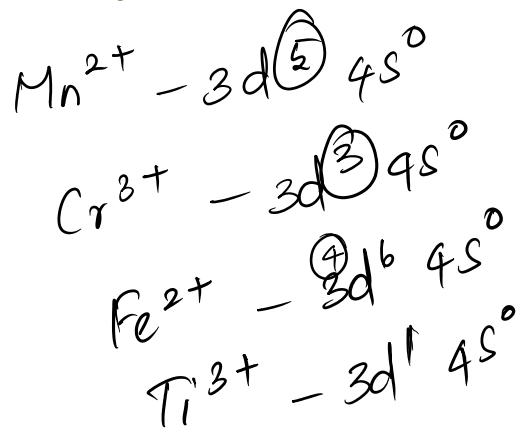 Mn²⁺ – 3d⁵ 4s⁰
Cr³⁺ – 3d³ 4s⁰
④
Fe²⁺ – 3d⁶ 4s⁰
Ti³⁺ – 3d¹ 4s⁰